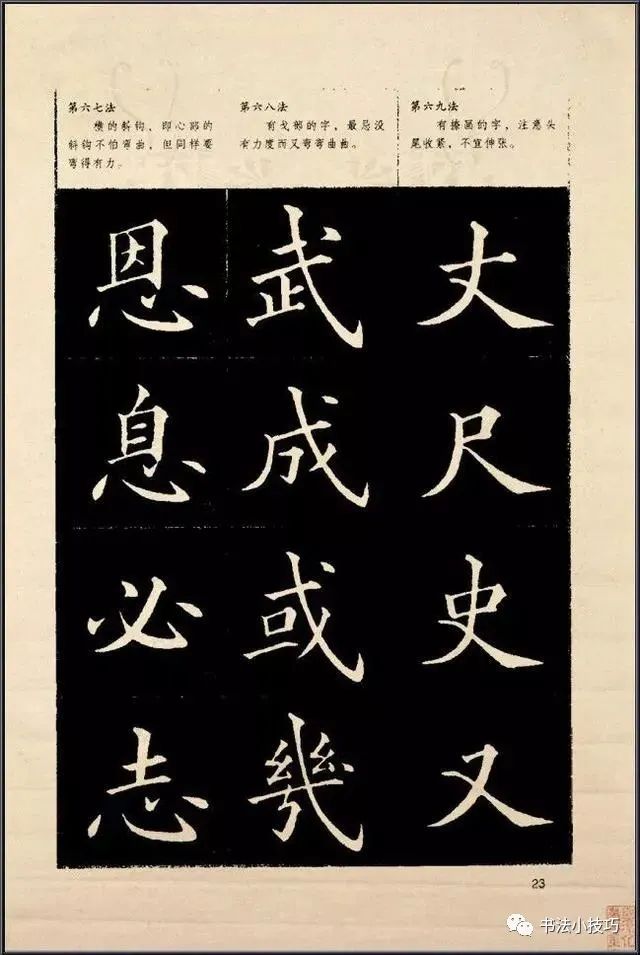 第六七法
横的斜钩、即心部的
斜钩不怕弯曲，但同样要
弯得有力。
第六八法
有戈部的字，最忌没
有力度而又弯弯曲曲。
第六九法
有捺画的字，注意头
尾收紧，不宜伸张。
恩息必志
武成或幾
丈尺史又
23
书法小技巧